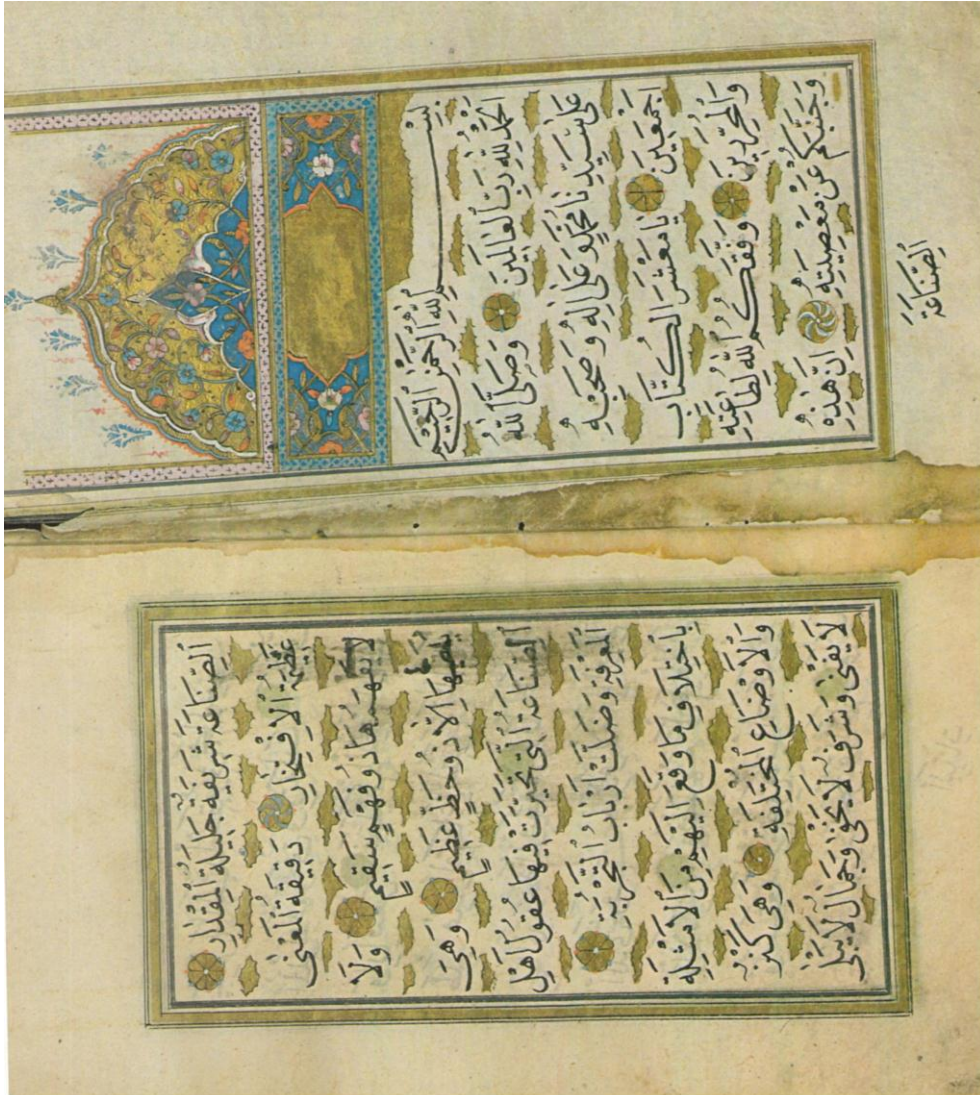 بِسْمِ اللهِ الرَّحْمٰنِ الرَّحِيمِ
اَلْحَمْدُ لِلّٰهِ رَبِّ الْعَالَمِينَ وَصَلَّى اللهُ
عَلٰى سَيِّدِنَا مُحَمَّدٍ وَعَلٰى اٰلِهِ وَصَحْبِهِ
اَجْمَعِينَ يَا مَعْشَرَ الْكُتَّابِ
وَالْمُحَرِّرِينَ وَفَّقَكُمُ اللهُ لِطَاعَتِهِ
وَجَنَّبَكُمْ عَنْ مَعْصِيَتِهِ اِنَّ هٰذِهِ
الصِّنَاعَةَ
الصِّنَاعَةَ شَرِيفَةٌ جَلِيلَةُ الْمِقْدَارِ
عَظِيمَةُ الْاِفْتِخَارِ دَقِيقَةُ الْمَعْنٰى
لَا يَفْهَمُهَا ذُو فَهْمٍ سَقِيمٍ وَلَا
اِلَّا ذُو حَظٍّ عَظِيمٍ وَهِيَ
الصِّنَاعَةُ الَّتِي تَحَيَّرَتْ فِيهَا عُقُولُ اَهْلِ
الْمَعْرِفَةِ وَضَلَّتْ اَرْبَابُ التَّجْرِبَةِ
بِاخْتِلَافِ مَا وَقَعَ اِلَيْهِمْ مِنَ الْاَمْثِلَةِ
وَالْاَوْضَاعِ الْمُخْتَلِفَةِ وَهِيَ كَنْزٌ
لَا يَفْنٰى وَشَرَفٌ لَا يَخْفٰى وَجَمَالٌ لَا يَبْلٰى